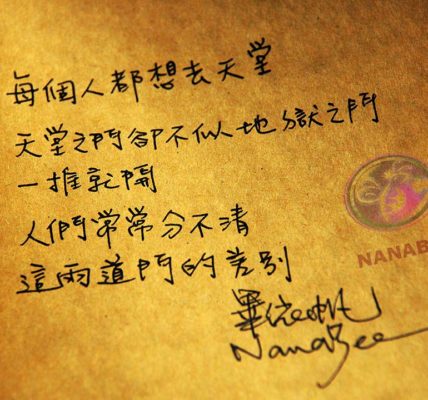 每個人都想去天堂
天堂之門卻不似地獄之門
一推就開
人們常常分不清
這兩道門的差別
NanaBee
NANAB